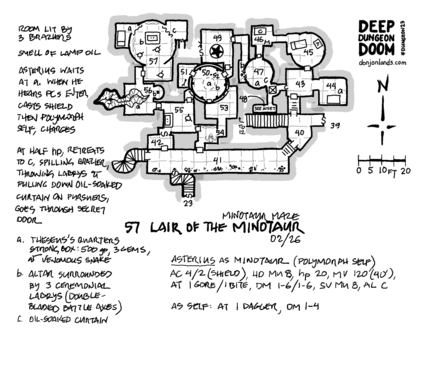 ROOM LIT BY
3 BRAZIERS
SMELL OF LAMP OIL
ASTERIUS WAITS
AT A. WHEN HE
HEARS PCS ENTER
CASTS SHIELD
THEN POLYMORPH
SELF, CHARGES
AT HALF HP, RETREATS
TO C, SPILLING BRAZIER,
THROWING LABRYS &
PULLING DOWN OIL-SOAKED
CURTAIN ON PURSUERS,
GOES THROUGH SECRET
DOOR
DEEP
DUNGEON
DOOM
#DUNGEON23
donjonlands.com
N
0 5 10 FT 20
a
b
c
57
49
46
45
51
50
a
b
47
c
43
44
a
56
55
53
48
SEE INSET
42
41
40
39
23
MINOTAUR MAZE
57 LAIR OF THE MINOTAUR
02/26
a. THESEUS'S QUARTERS
STRONG BOX: 500 gp, 3 GEMS,
VENOMOUS SNAKE
b. ALTAR SURROUNDED
BY 3 CEREMONIAL
LABRYS (DOUBLE-
BLADED BATTLE AXES)
C. OIL-SOAKED CURTAIN
ASTERIUS AS MINOTAUR (POLYMORPH SELF)
AC 4/2 (SHIELD), HD MU 8, hp 20, MV 120 (40'),
AT 1 GORE/1 BITE, DM 1-6/1-6, SV MU 8, AL C
AS SELF: AT 1 DAGGER, DM 1-4